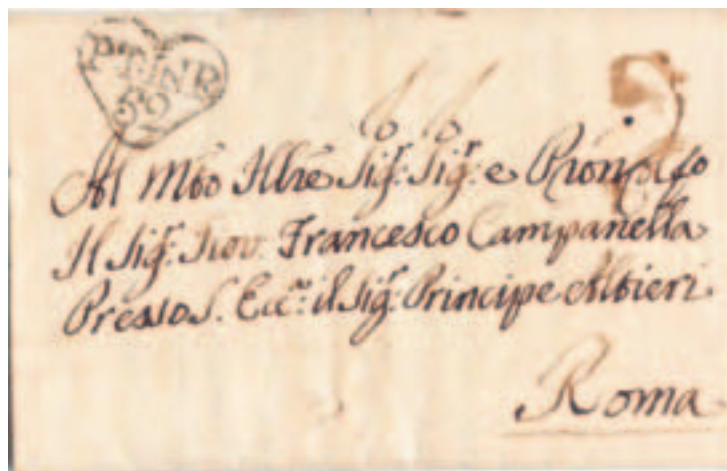 P.T.I.N.R
59
Al Mto Illre Sigr: Sigr: e Pron Colo
Il Sigr: Giov: Francesco Campanella
Presso S. Ecc.a il Sigr: Principe Altieri
Roma